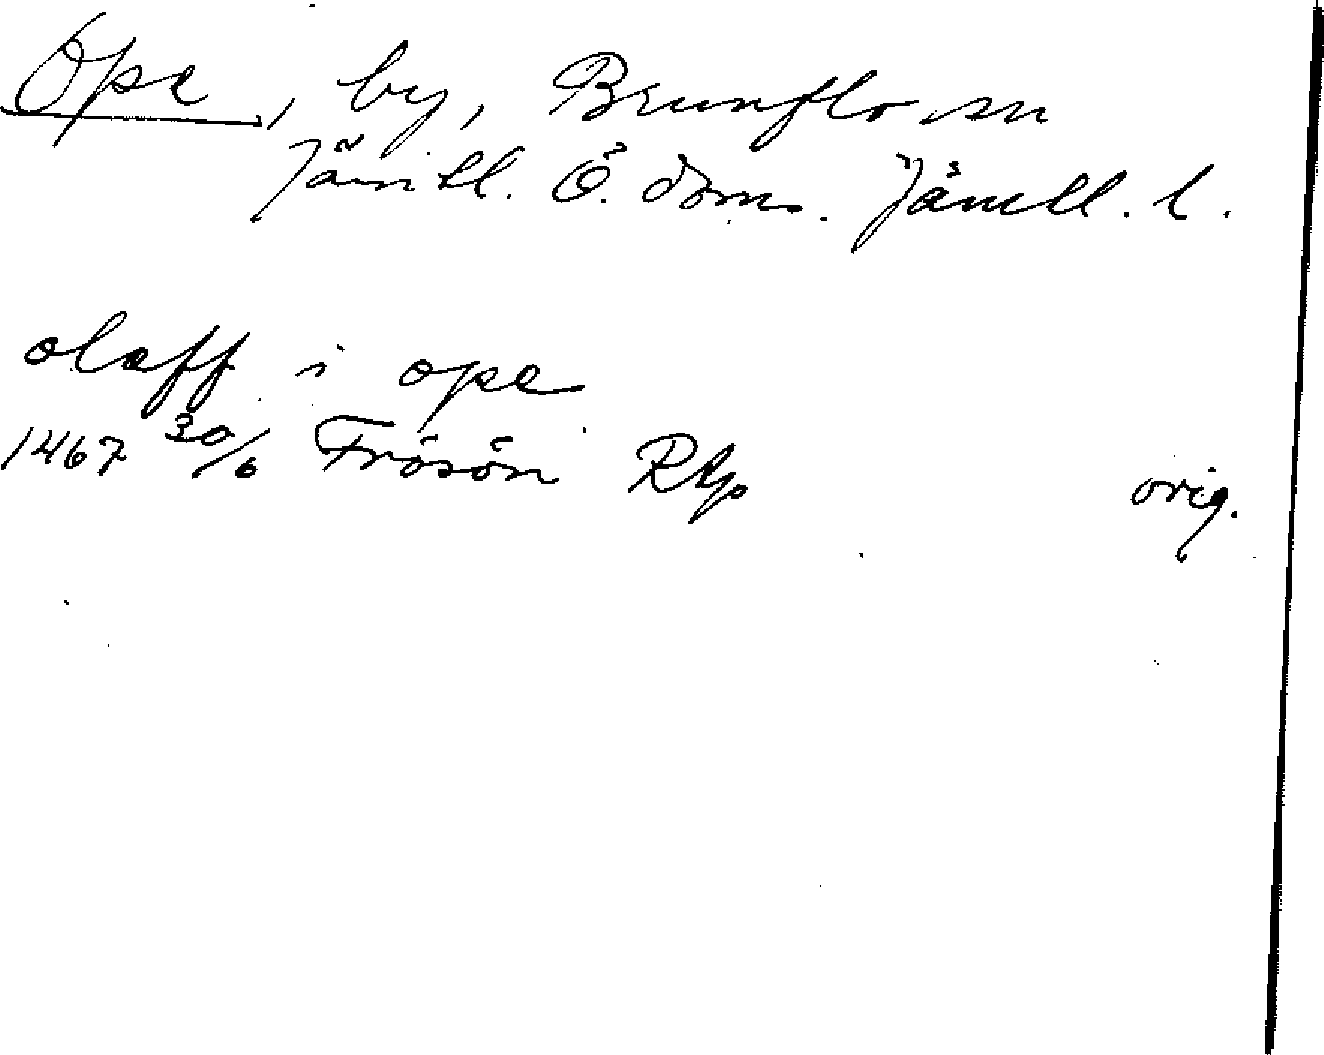 Ope, by, Brunflo sn
Jämtl. Ö. doms. Jämtl. l.
olaff i ope
1467 30/6 Frösön RAp orig.